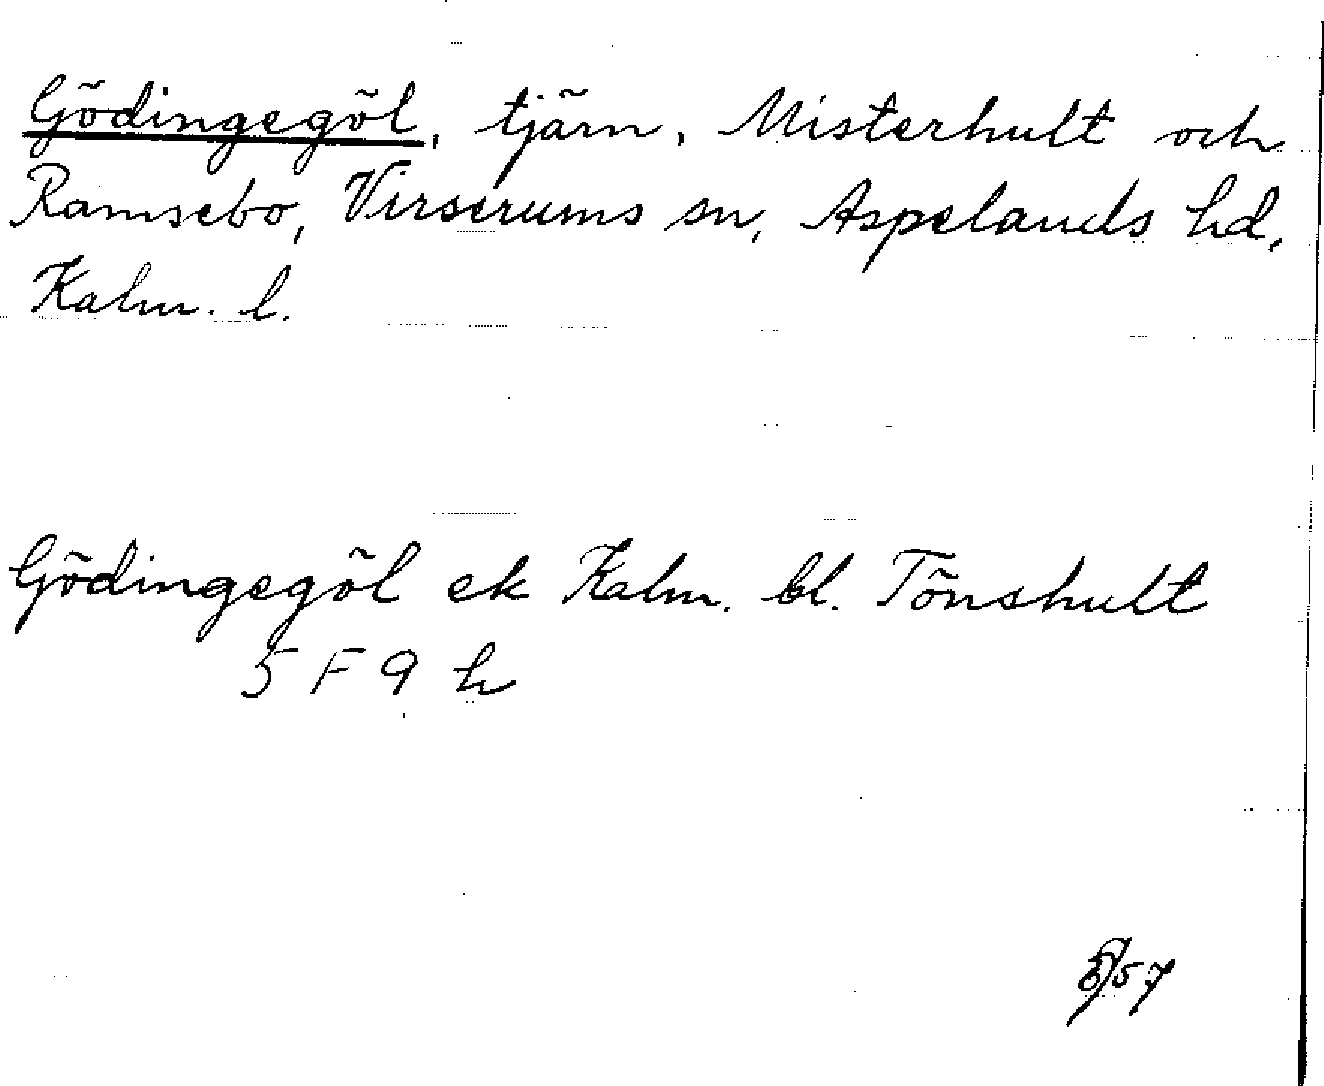 Gödingegöl, tjärn, Misterhult och
Ramsebo, Virserums sn, Aspelands hd,
Kalm. l.
Gödingegöl ek Kalm. bl. Tönshult
5 F 9 h